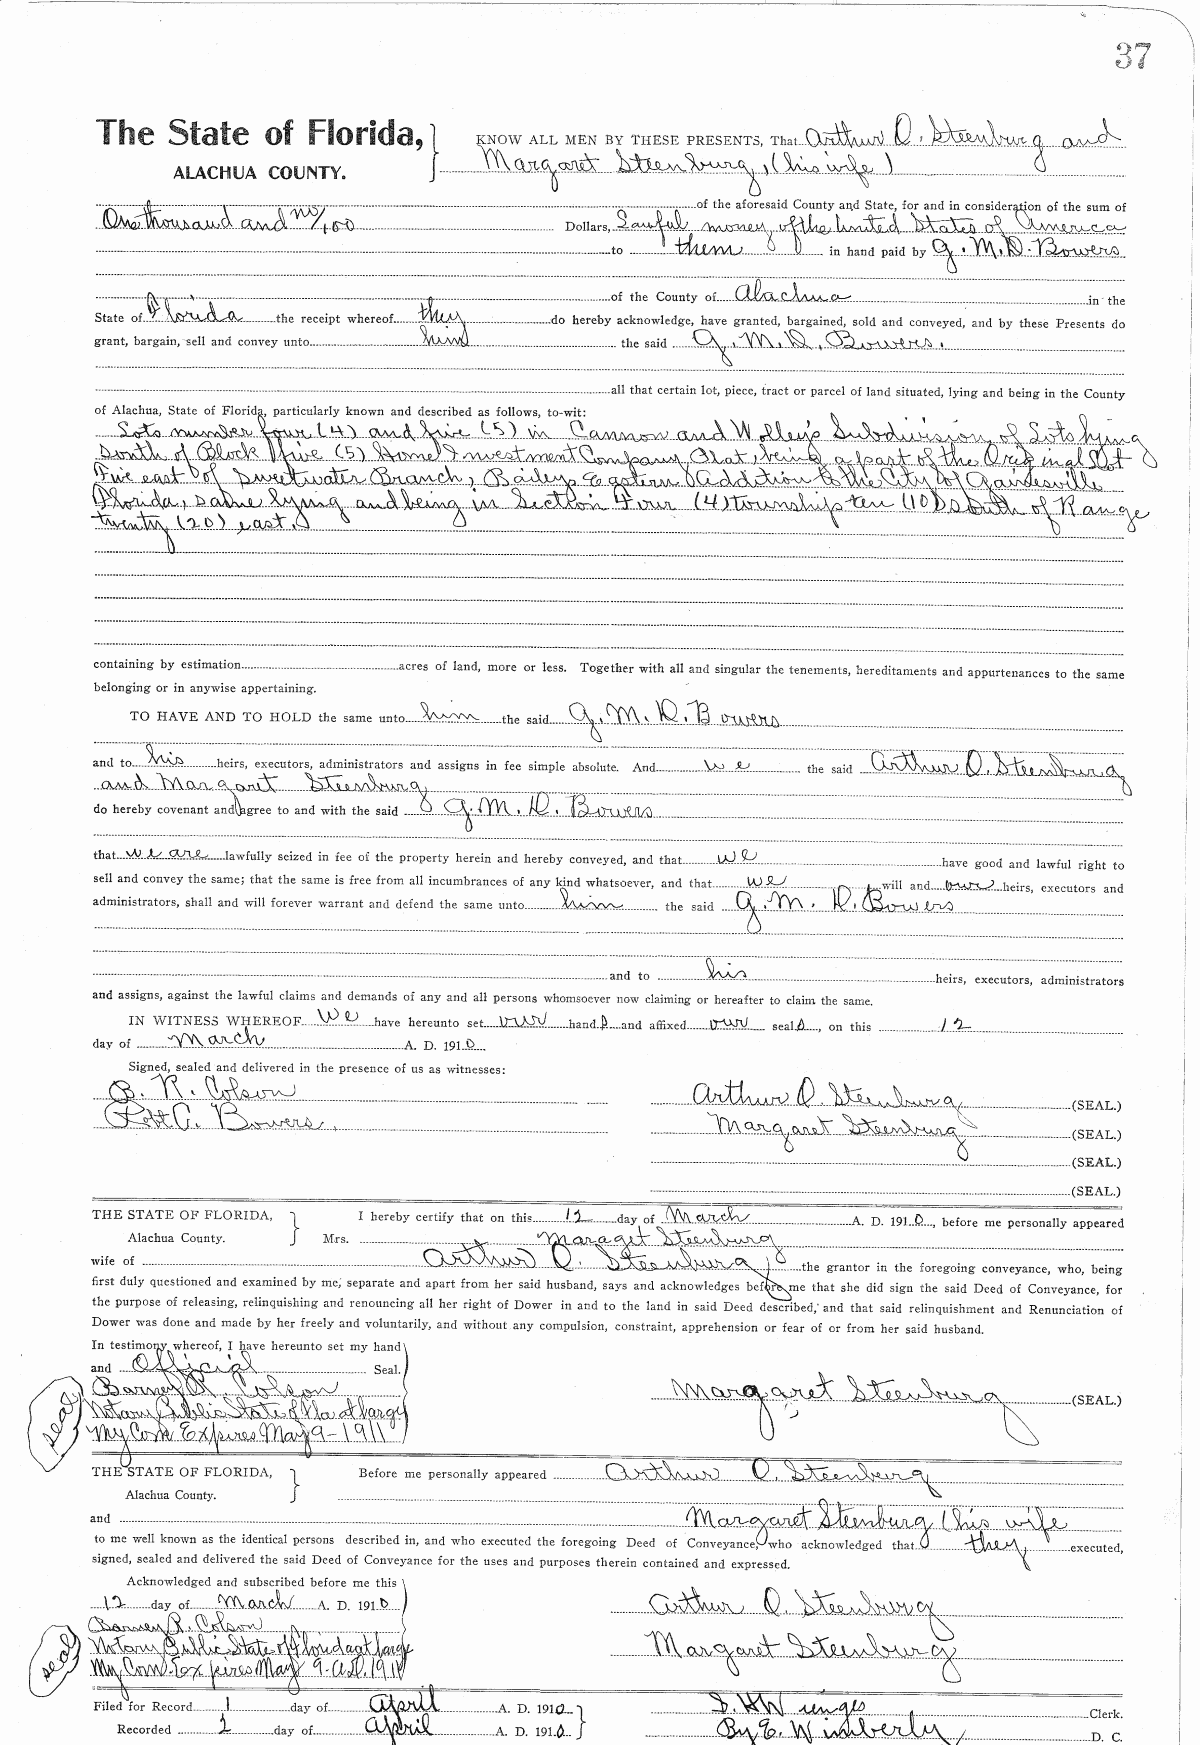 37
The State of Florida,
ALACHUA COUNTY.
KNOW ALL MEN BY THESE PRESENTS, That Arthur O. Steenburg and
Margaret Steenburg, (his wife)
of the aforesaid County and State, for and in consideration of the sum of
One thousand and no/100 Dollars, Lawful money of the United States of America
to them in hand paid by G. M. D. Bowers
of the County of Alachua in the
State of Florida the receipt whereof they do hereby acknowledge, have granted, bargained, sold and conveyed, and by these Presents do
grant, bargain, sell and convey unto him the said G. M. D. Bowers.
all that certain lot, piece, tract or parcel of land situated, lying and being in the County
of Alachua, State of Florida, particularly known and described as follows, to-wit:
Lots number four (4) and five (5) in Cannon and Wolley's Subdivision of Lots lying
South of Block five (5) Home Investment Company Plat, being a part of the Original Lot
Five east of Sweetwater Branch, Bailey's Eastern Addition to the City of Gainesville
Florida, same lying and being in Section Four (4) township ten (10) south of Range
twenty (20) east.
containing by estimation acres of land, more or less. Together with all and singular the tenements, hereditaments and appurtenances to the same
belonging or in anywise appertaining.
TO HAVE AND TO HOLD the same unto him the said G. M. D. Bowers
and to his heirs, executors, administrators and assigns in fee simple absolute. And we the said Arthur O. Steenburg
and Margaret Steenburg
do hereby covenant and agree to and with the said G. M. D. Bowers
that we are lawfully seized in fee of the property herein and hereby conveyed, and that we have good and lawful right to
sell and convey the same; that the same is free from all incumbrances of any kind whatsoever, and that we will and our heirs, executors and
administrators, shall and will forever warrant and defend the same unto him the said G. M. D. Bowers
and to his heirs, executors, administrators
and assigns, against the lawful claims and demands of any and all persons whomsoever now claiming or hereafter to claim the same.
IN WITNESS WHEREOF we have hereunto set our hands and affixed our seals, on this 12
day of March A. D. 1910
Signed, sealed and delivered in the presence of us as witnesses:
B. R. Colson
Robt C. Bowers.
Arthur O. Steenburg (SEAL.)
Margaret Steenburg (SEAL.)
(SEAL.)
(SEAL.)
THE STATE OF FLORIDA,
Alachua County.
I hereby certify that on this 12 day of March A. D. 1910, before me personally appeared
Mrs. Maraget Steenburg
wife of Arthur O. Steenburg, the grantor in the foregoing conveyance, who, being
first duly questioned and examined by me, separate and apart from her said husband, says and acknowledges before me that she did sign the said Deed of Conveyance, for
the purpose of releasing, relinquishing and renouncing all her right of Dower in and to the land in said Deed described, and that said relinquishment and Renunciation of
Dower was done and made by her freely and voluntarily, and without any compulsion, constraint, apprehension or fear of or from her said husband.
In testimony whereof, I have hereunto set my hand
and Official Seal.
Barney R. Colson
Notary Public State of Fla at large
My Com Expires May 9-1911
seal
Margaret Steenburg (SEAL.)
THE STATE OF FLORIDA,
Alachua County.
Before me personally appeared Arthur O. Steenburg
and Margaret Steenburg (his wife
to me well known as the identical persons described in, and who executed the foregoing Deed of Conveyance, who acknowledged that they executed,
signed, sealed and delivered the said Deed of Conveyance for the uses and purposes therein contained and expressed.
Acknowledged and subscribed before me this
12 day of March A. D. 1910
Barney R. Colson
Notary Public State of Florida at large
My Com. Expires May 9-A.D. 1911
seal
Arthur O. Steenburg
Margaret Steenburg
Filed for Record 1 day of April A. D. 1910
Recorded 2 day of April A. D. 1910
S. H. Wienges Clerk.
By E. Wimberly, D. C.